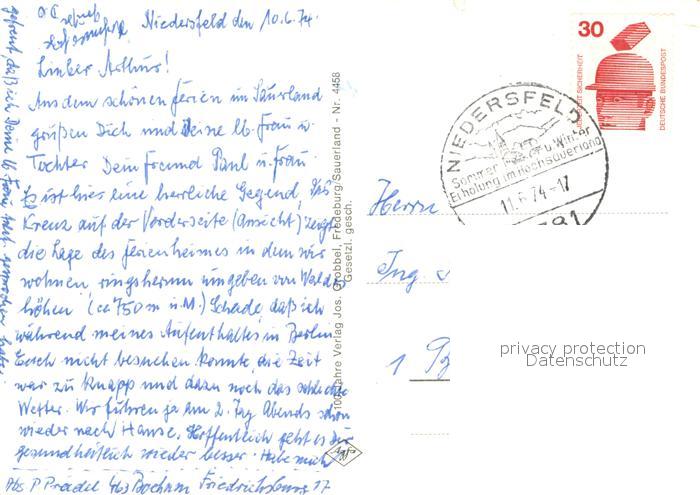 Niedersfeld den 10.6.74.
Lieber Arthur!
Aus dem schönen Ferien im Sauerland
grüßen Dich und Deine lb. Frau u.
Tochter Dein Freund Paul u. Frau
Es ist hier eine herrliche Gegend, Das
Kreuz auf der Vorderseite (Ansicht) zeigt
die Lage des Ferienheimes in dem wir
wohnen, ringsherum umgeben von Wald
höhen (ca 750 m ü.M.) Schade, daß ich
während meines Aufenthaltes in Berlin
Euch nicht besuchen konnte, die Zeit
war zu knapp und dazu noch das schlechte
Wetter. Wir fuhren ja am 2. Tag Abends schon
wieder nach Hause. Hoffentlich geht es Dir
gesundheitlich wieder besser. Habe mich
gefreut, daß ich Deine lb. Frau gesprochen habe.
Abs P Pradel 463 Bochum Friedrichstr. 17
100 Jahre Verlag Jos. Grobbel, Fredeburg/Sauerland - Nr. 4458
Gesetzl. gesch.
30
SICHERHEIT
DEUTSCHE BUNDESPOST
NIEDERSFELD
Sommer u. Winter
Erholung im Hochsauerland
11.6.74-17
5781
Herrn
Ing
1
privacy protection
Datenschutz